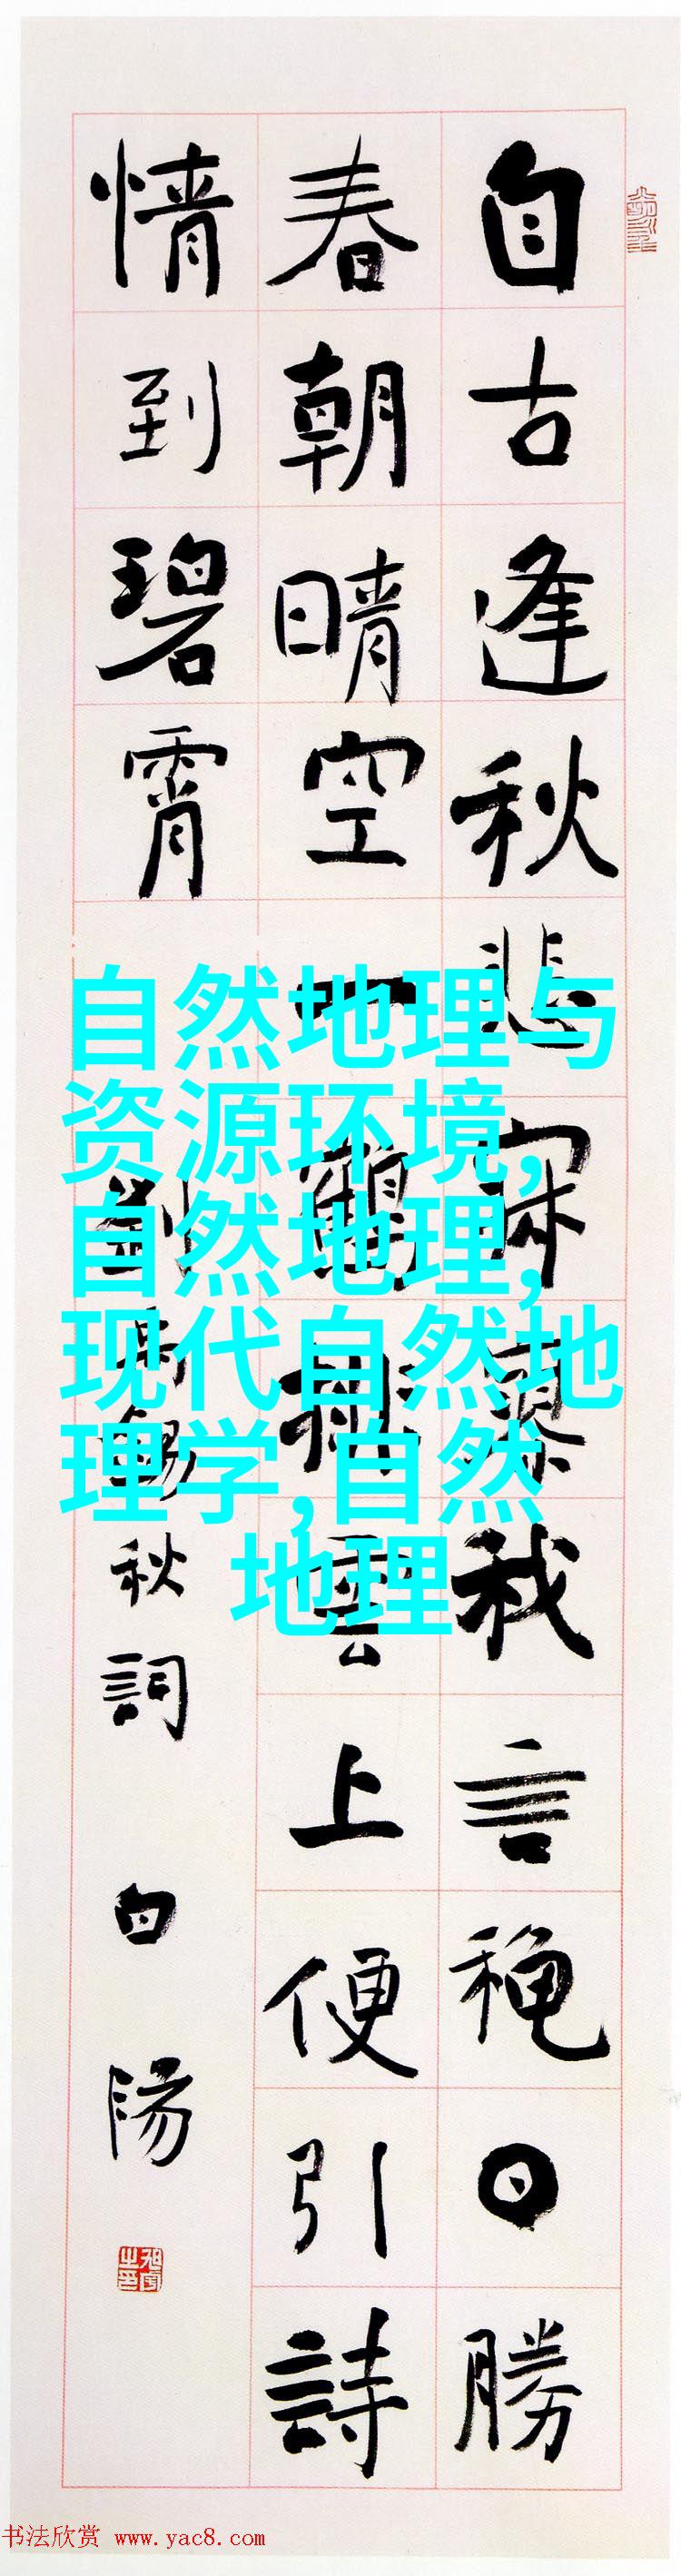 自古逢秋悲寂寥我言秋日勝
春朝晴空一鶴排雲上便引詩
情到碧霄
劉禹錫秋詞 白陽
自然地理与
资源环境,
自然地理,
现代自然地
理学,自然
地理
书法欣赏 www.yac8.com